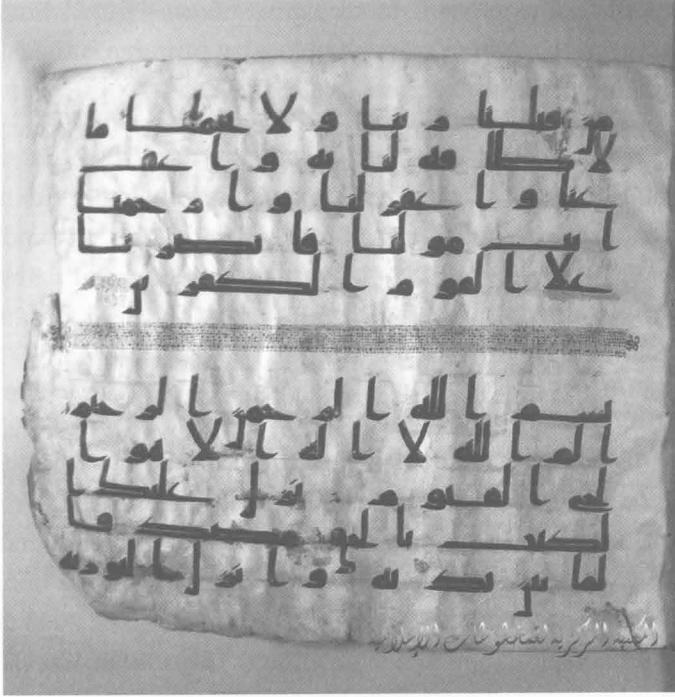 من قبلنا ربنا ولا تحملنا ما
لا طاقة لنا به واعف
عنا واغفر لنا وارحمنا
انت مولنا فانصرنا
على القوم الكفرين
بسم الله الرحمن الرحيم
الم الله لا اله الا هو ا
لحى القيوم نزل عليك ا
لكتب بالحق مصدقا
لما بين يديه وانزل التورية
المكتبة المركزية للمخطوطات الإسلامية